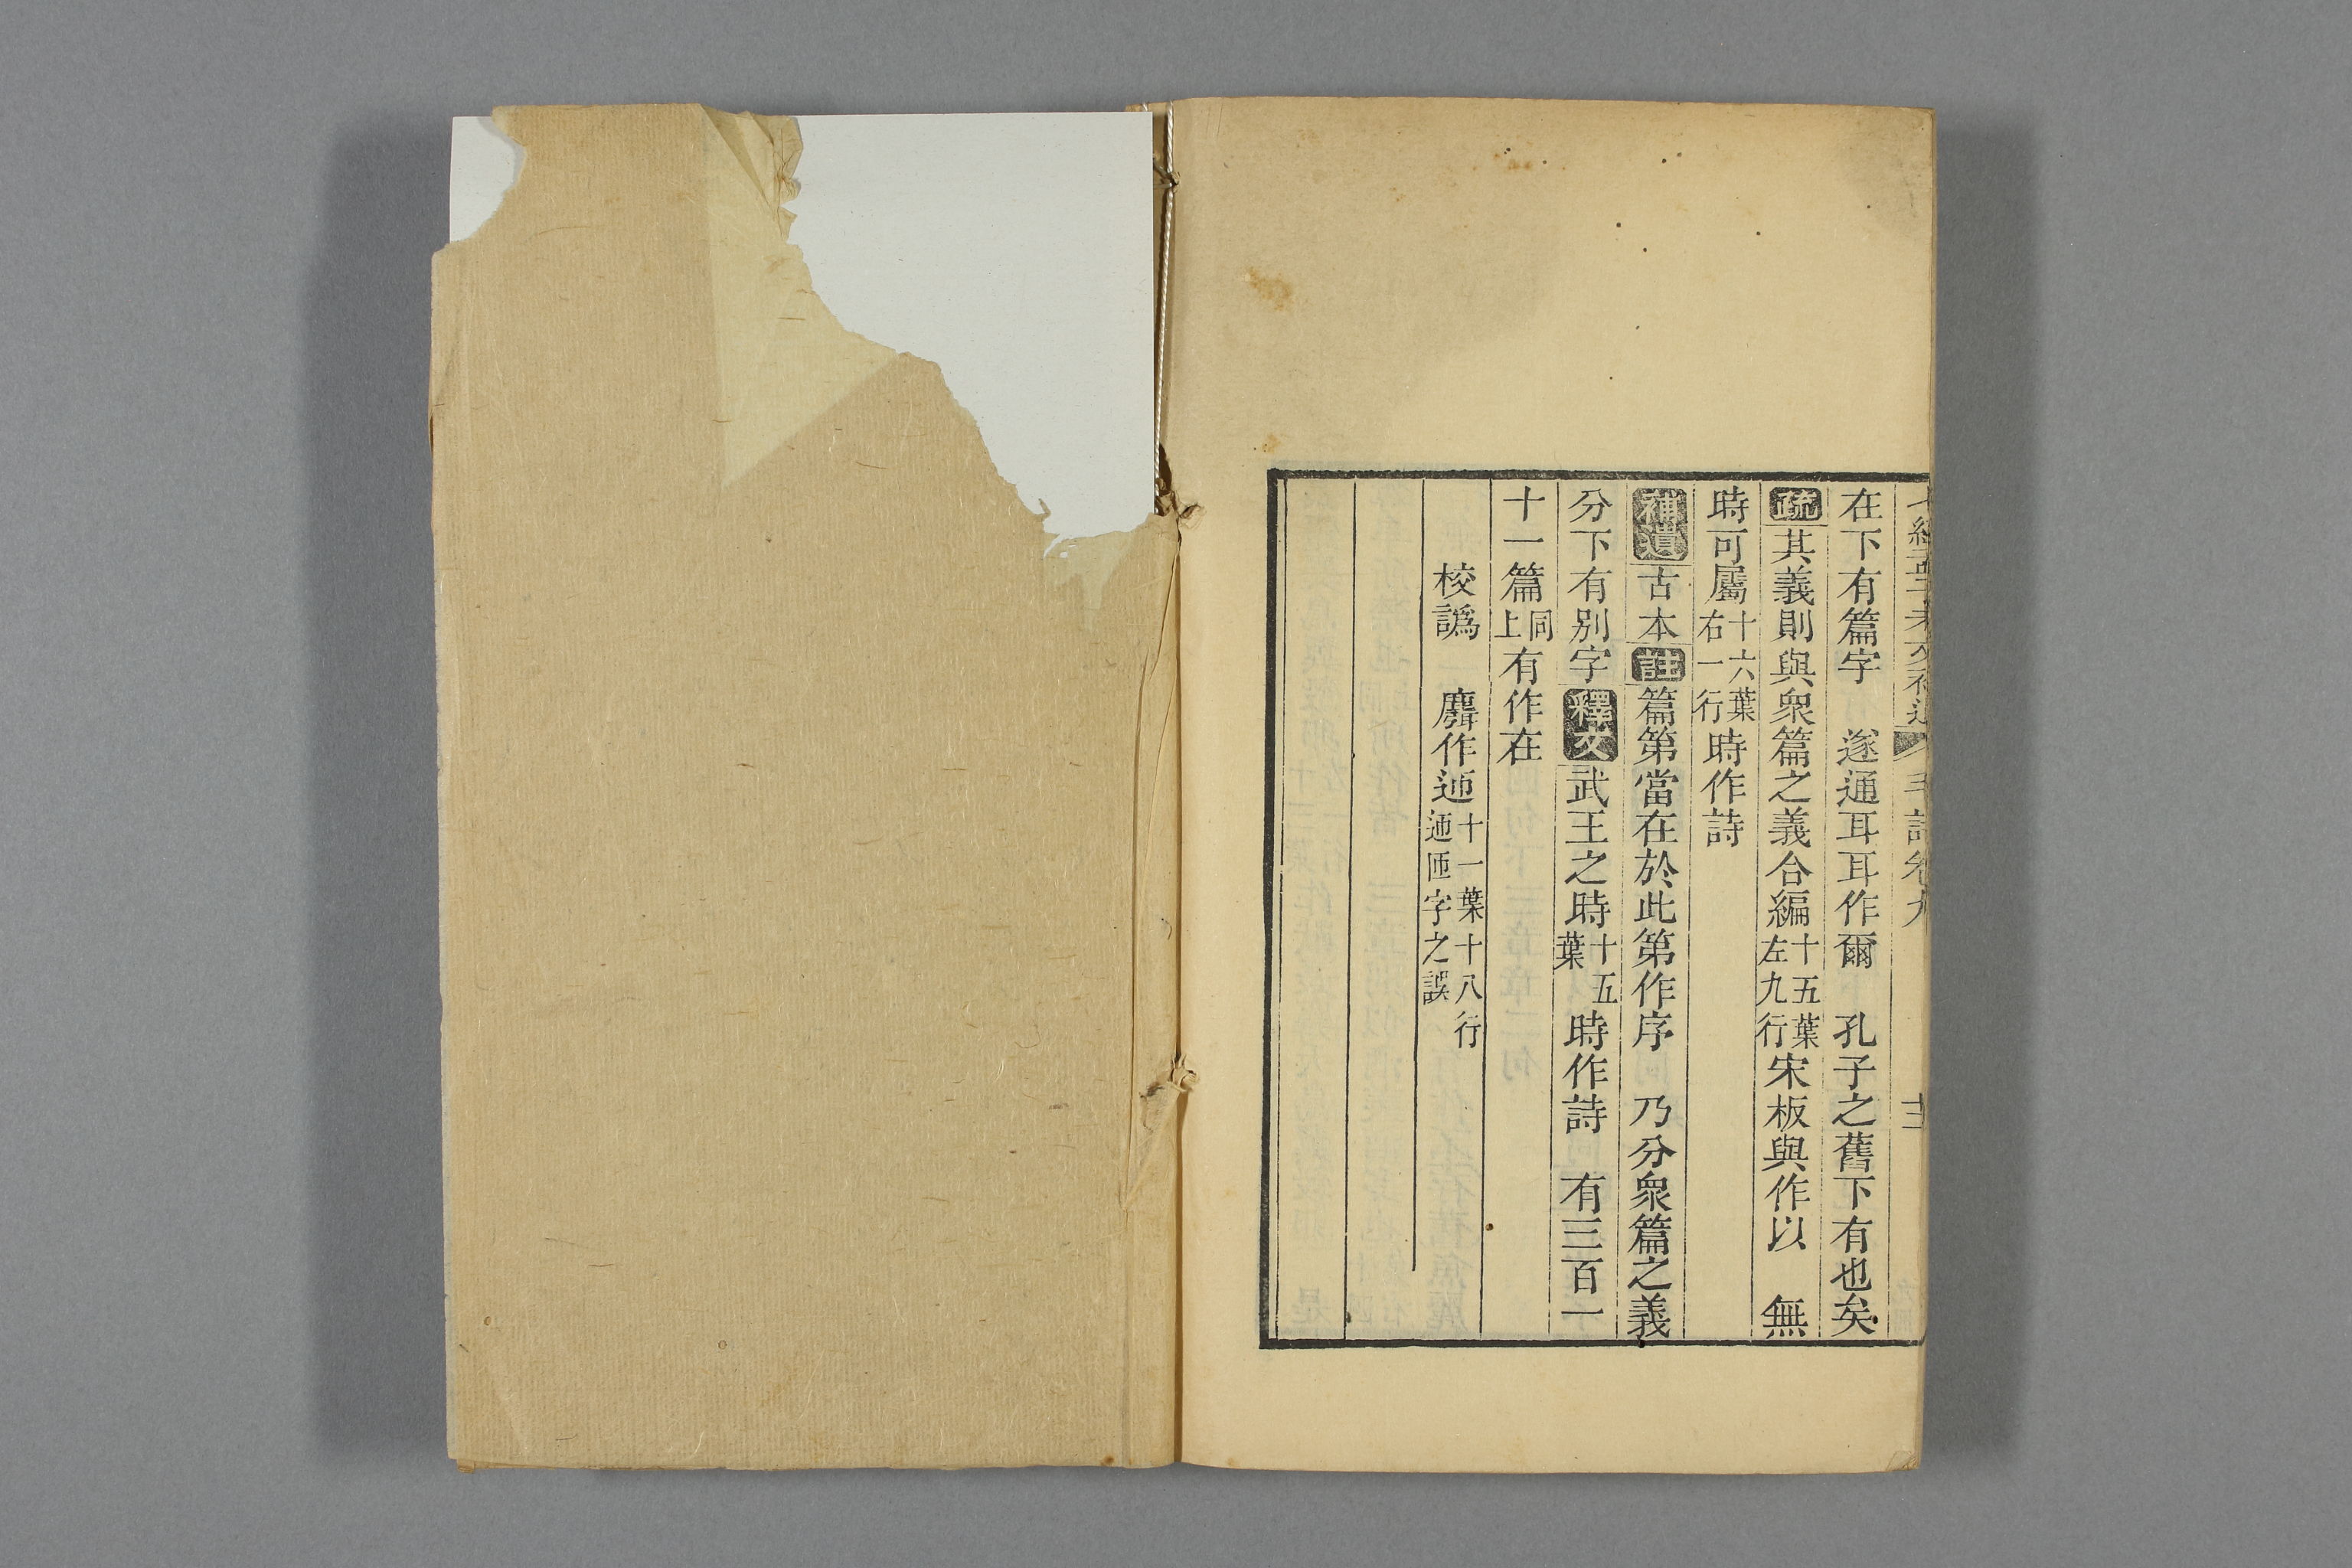 七經孟子考文補遺 毛詩卷九 十三
在下有篇字 遂通耳耳作爾 孔子之舊下有也矣
疏其義則與衆篇之義合編十五葉左九行宋板與作以 無
時可屬十六葉右一行時作詩
補遺古本註篇第當在於此第作序 乃分衆篇之義
分下有别字釋文武王之時十五葉時作詩 有三百一
十一篇同上有作在
校譌 麕作𨒪十一葉十八行𨒪匝字之誤